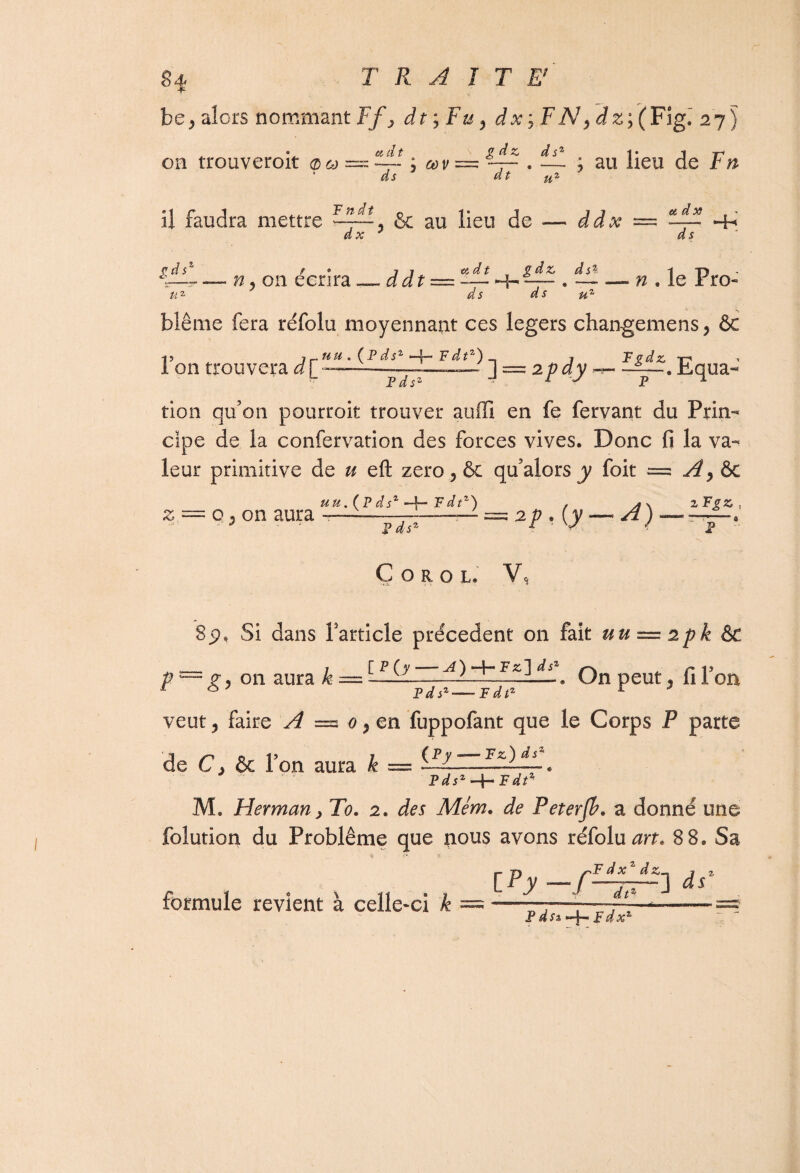 84 TRAITE'
be, alors nommant Ff, dt; Fu, dx; FN, dz; (Fig. 27)
on trouveroit φω = αdt/ds ; ων = gdz/dt . ds²/u² ; au lieu de Fn
il faudra mettre Fndt/dx, & au lieu de — ddx = αdx/ds +
gds²/u² — n, on écrira — ddt = αdt/ds + gdz/ds . ds²/u² — n . le Pro-
blême sera résolu moyennant ces legers changemens, &
l'on trouvera d[uu.(Pds² + Fdt²)/Pds²] = 2pdy — Fgdz/P. Equa-
tion qu'on pourroit trouver aussi en se servant du Prin-
cipe de la conservation des forces vives. Donc si la va-
leur primitive de u est zero, & qu'alors y soit = A, &
z = 0, on aura uu.(Pds² + Fdt²)/Pds² = 2p.(y — A) — 2Fgz/P.
COROL. V.
89. Si dans l'article précedent on fait uu = 2pk &
p = g, on aura k = [P(y — A) + Fz]ds²/Pds² — Fdt². On peut, si l'on
veut, faire A = 0, en supposant que le Corps P parte
de C, & l'on aura k = (Py — Fz)ds²/Pds² + Fdt².
M. Herman, To. 2. des Mém. de Petersb. a donné une
solution du Problême que nous avons résolu art. 88. Sa
formule revient à celle-ci k = [Py — ∫Fdx²dz/dt²]ds²/Pds² + Fdx² =